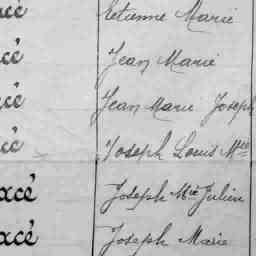 acé Etienne Marie
acé Jean Marie
acé Jean Marie Joseph
acé Joseph Louis Mie
acé Joseph Mie Julien
acé Joseph Marie